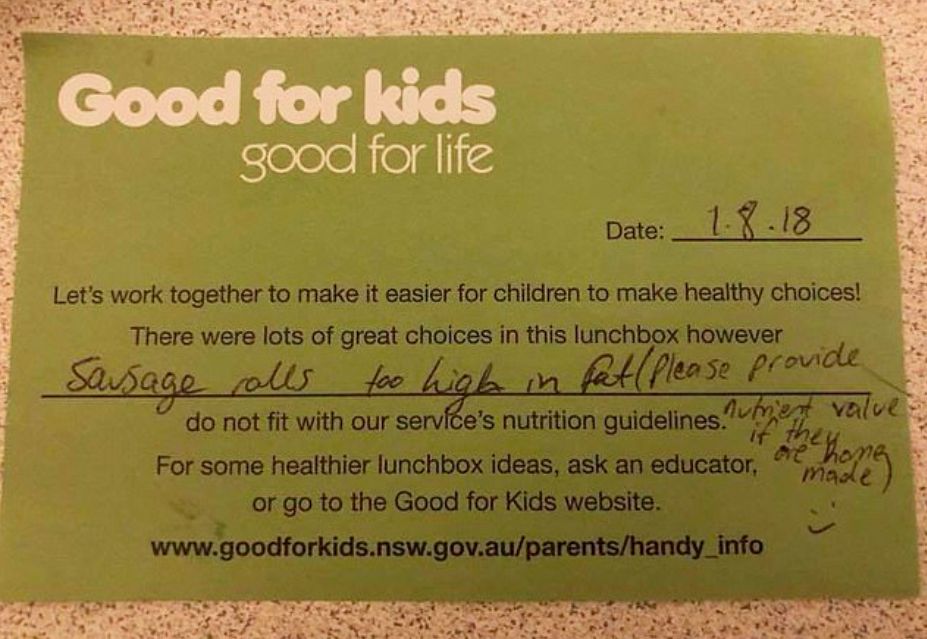 Good for kids
good for life
Date: 1.8.18
Let's work together to make it easier for children to make healthy choices!
There were lots of great choices in this lunchbox however
Sausage rolls too high in fat (Please provide
nutrient value
if they
are home
made)
do not fit with our service's nutrition guidelines.
For some healthier lunchbox ideas, ask an educator,
or go to the Good for Kids website.
www.goodforkids.nsw.gov.au/parents/handy_info